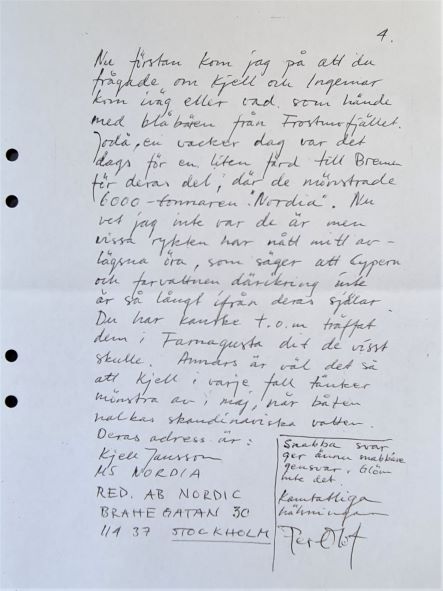 4.
Nu förstån kom jag på att du
frågade om Kjell och Ingemar
kom iväg eller vad som hände
med blåbären från Frostmofjället.
Jodå, en vacker dag var det
dags för en liten färd till Bremen
för deras del; där de mönstrade
6000-tonnaren "Nordia". Nu
vet jag inte var de är men
vissa rykten har nått mitt av-
lägsna öra, som säger att Cypern
och farvattnen däribring inte
är så långt ifrån deras själar.
Du har kanske t.o.m träffat
dem i Famagusta dit de visst
skulle. Annars är väl det så
att Kjell i varje fall tänker
mönstra av i maj, när båten
nalkas skandinaviska vatten.
Deras adress är:
Kjell Jansson
MS NORDIA
RED. AB NORDIC
BRAHEGATAN 30
114 37 STOCKHOLM
Snabba svar
ger ännu snabbare
gensvar. Glöm
inte det.
Kamratliga
hälsningar
Per Olof